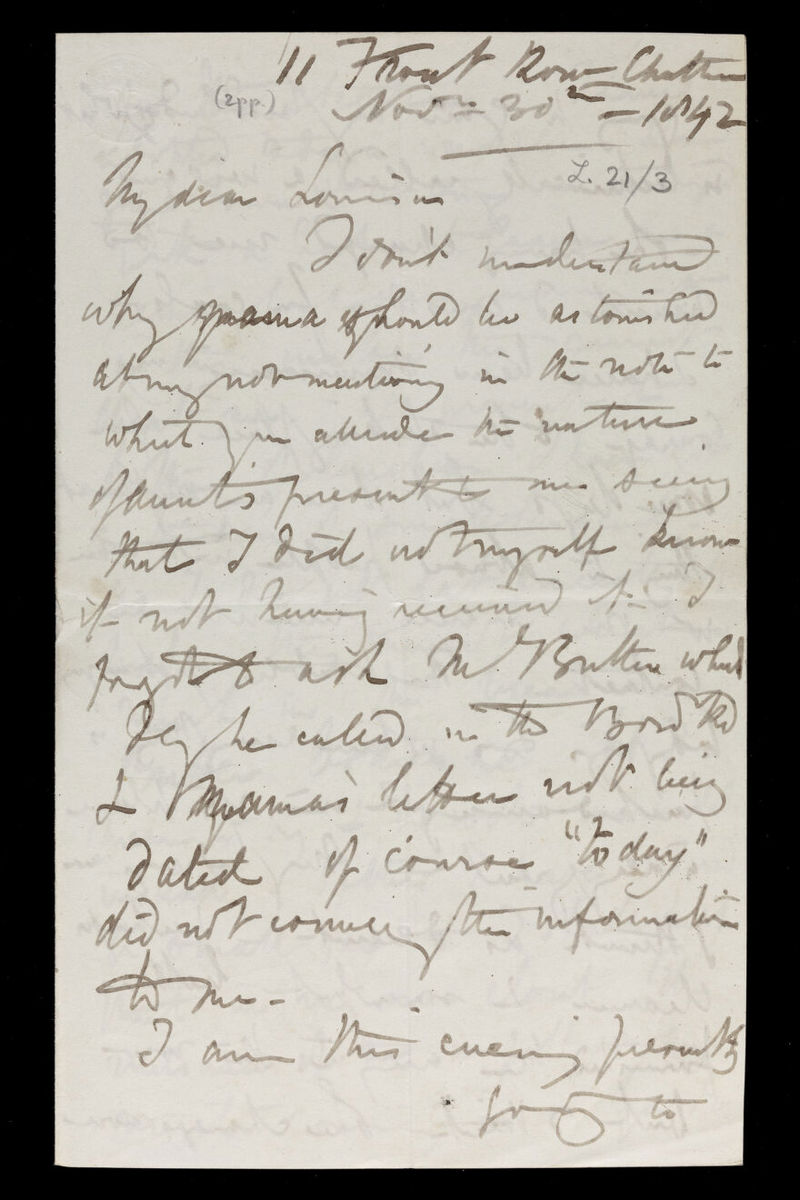 11 Front Row Chatham
(2pp.) Novr 30th – 1842
L. 21/3
My dear Louisa
I don't understand
why mama should be astonished
at my not mentioning in the note to
which you allude the nature
of aunt's present to me seeing
that I did not myself know
it not having received it – I
forgot to ask Mr Butter what
day he called in the
& Mama's letter not being
dated of course "to day"
did not convey the information
to me –
I am this evening presently
going to